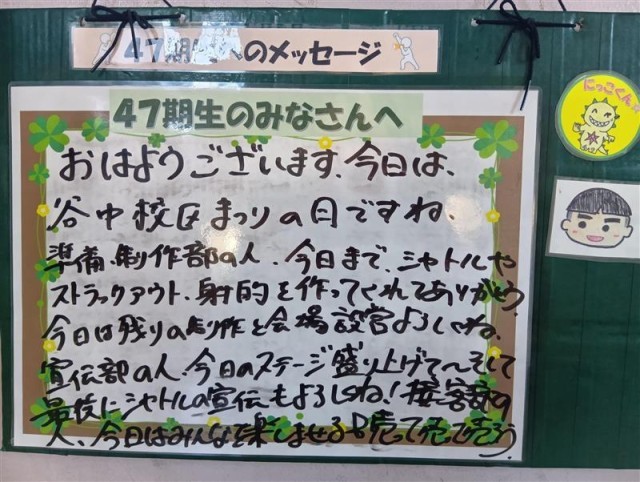 47期生へのメッセージ
47期生のみなさんへ
おはようございます、今日は、
谷中校区まつりの日ですね、
準備、制作部の人、今日まで、シャトルや
ストラックアウト、射的を作ってくれてありがとう、
今日は残りの制作と会場設営よろしくね、
宣伝部の人、今日のステージ盛り上げて〜そして
最後にシャトルの宣伝もよろしくね!接客部の
人、今日はみんなを楽しませる日売って売って売ろう
にっこくん